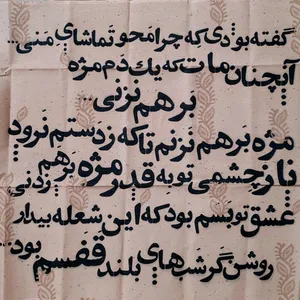 گفته بودی که چرا محو تماشای منی...
آنچنان مات که یک دم مژه
بر هم نزنی...
مژه بر هم نزنم تا که ز دستم نرود
ناز چشمی تو به قدر مژه بر هم زدنی
عشق تو بسم بود که این شعله بیدار
روشنگر شب‌های بلند قفسم بود...